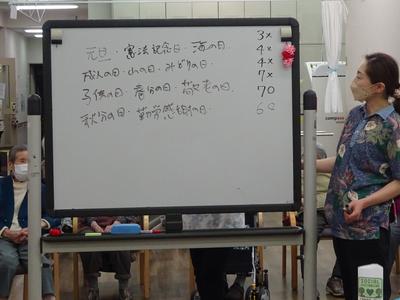 元旦・憲法記念日・海の日 3x
4x
成人の日・山の日・みどりの日 4x
7x
子供の日・春分の日・敬老の日 70
秋分の日・勤労感謝の日 60
SOCIAL